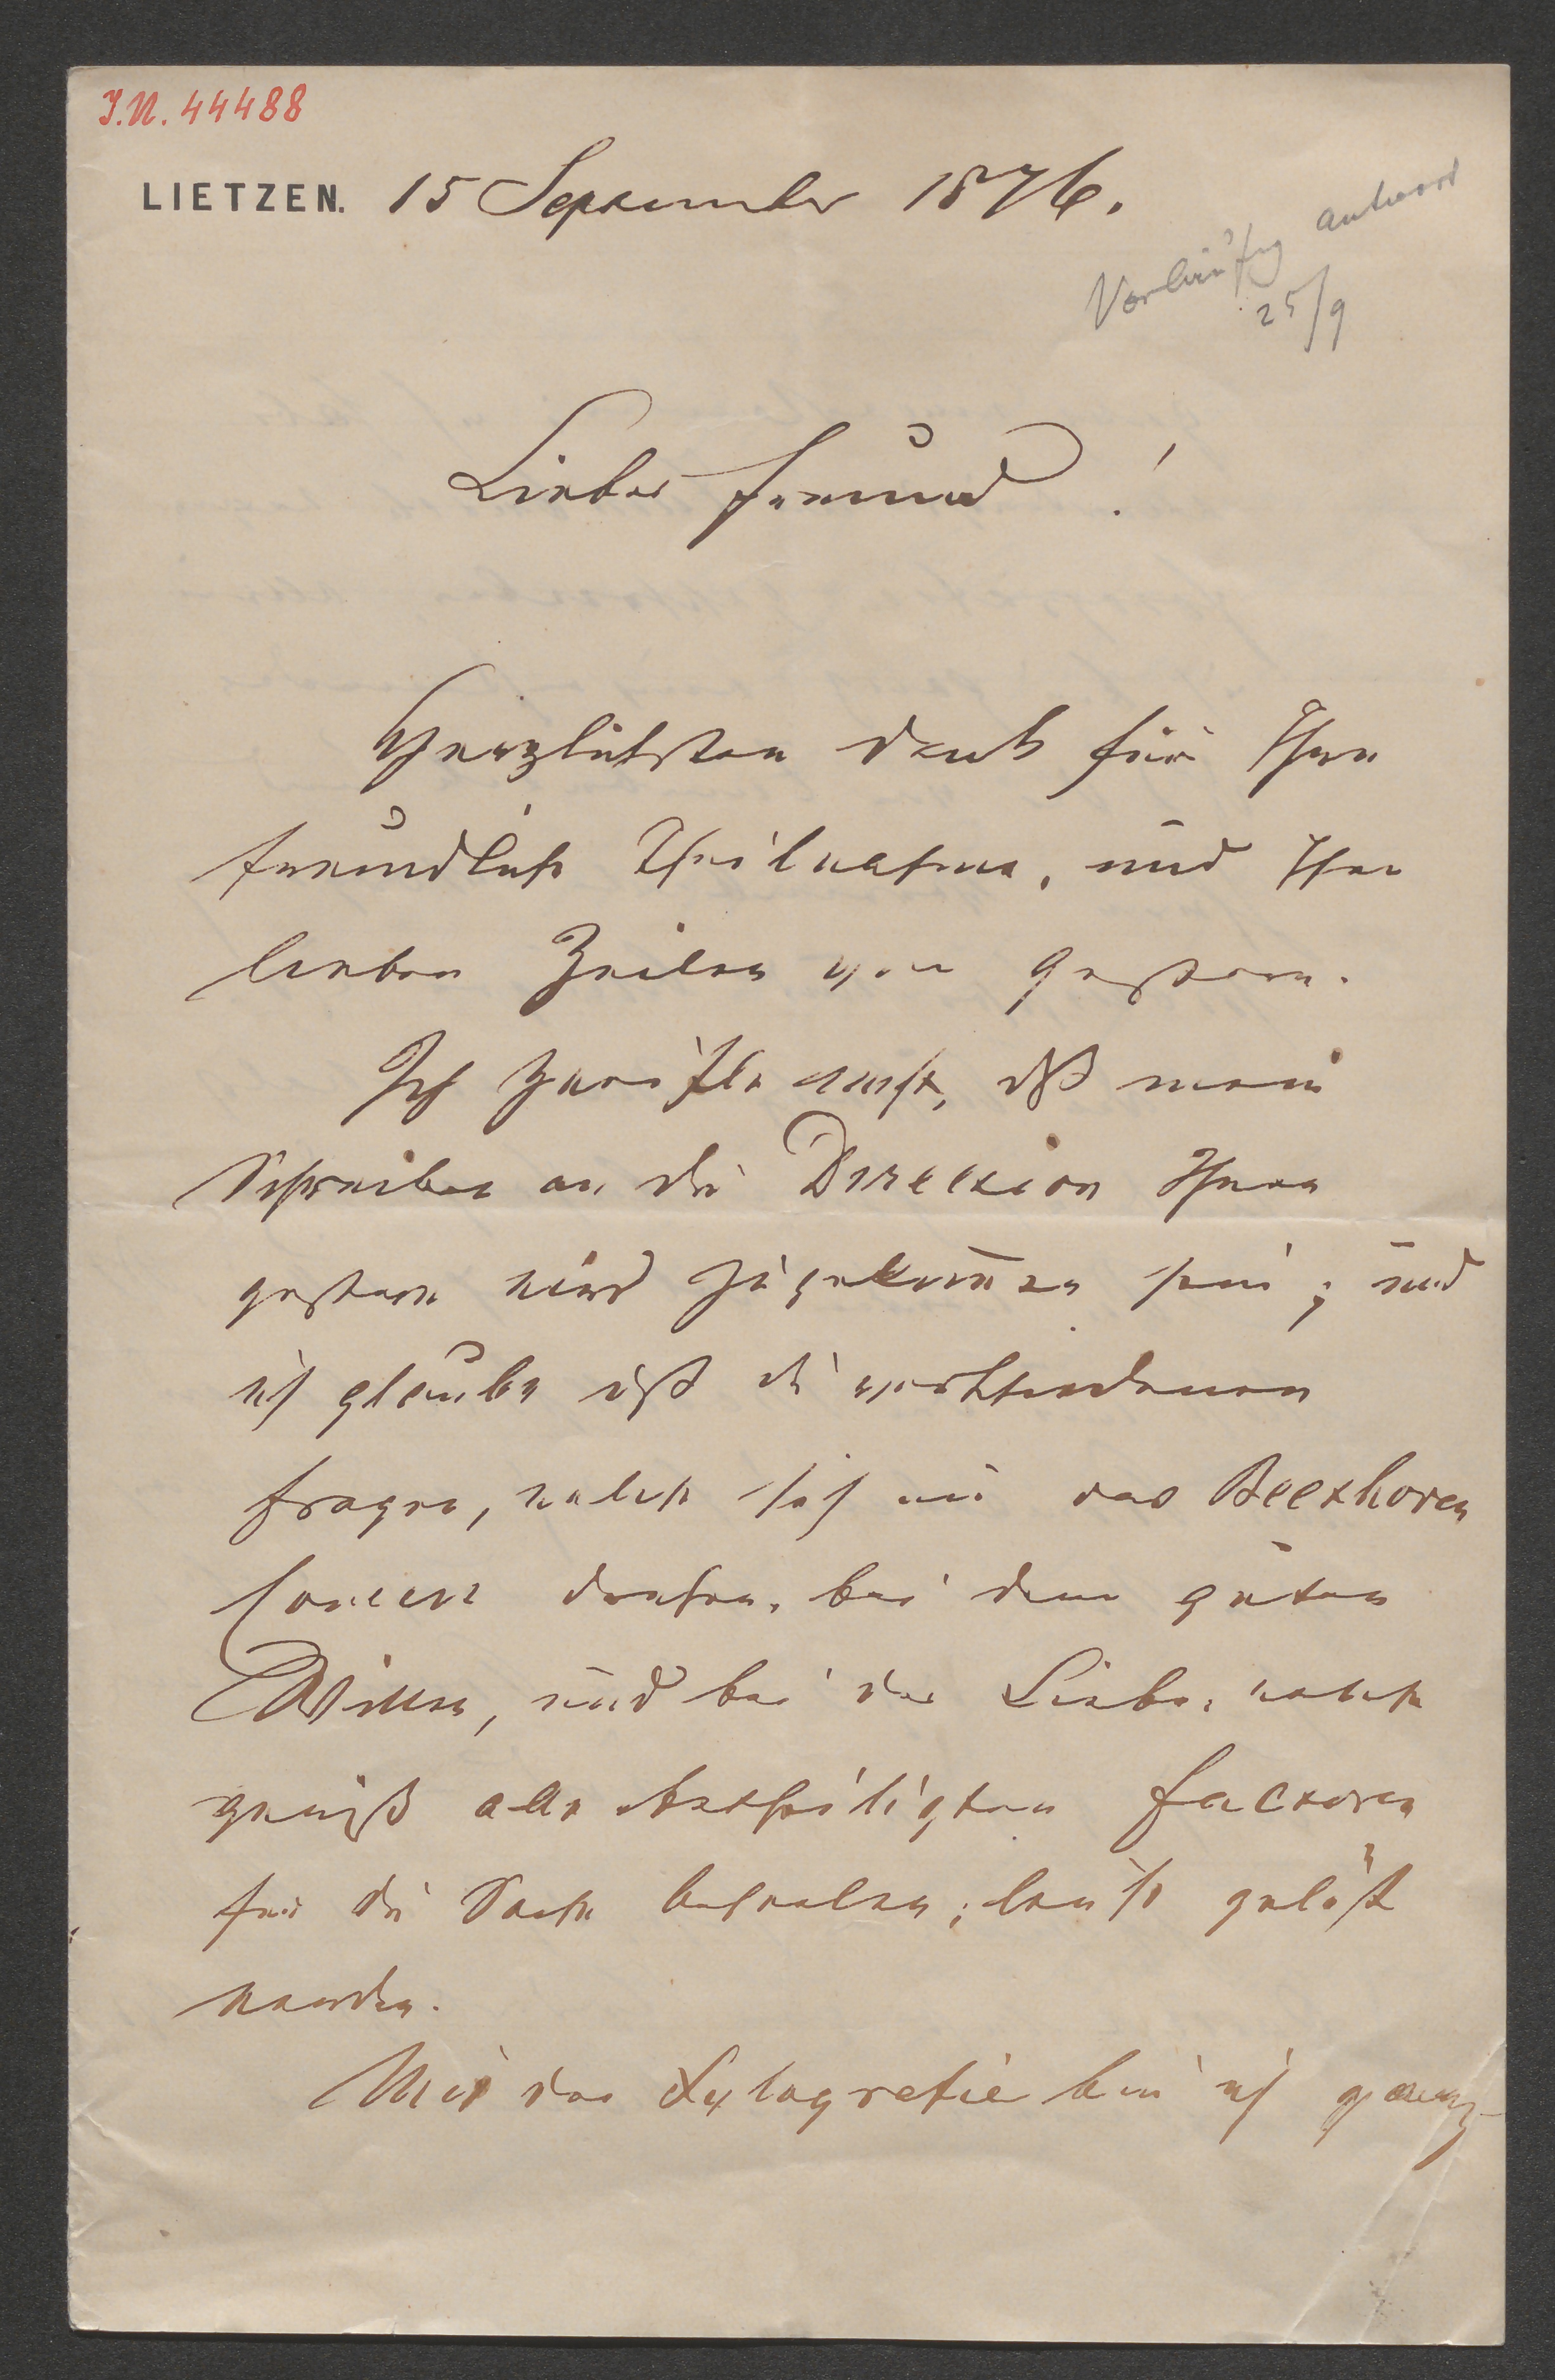 I.N. 44488
LIETZEN. 15 September 1876.
Vorläufig antwort
25/9
Lieber Freund!
Herzlichsten Dank für Ihre
freundliche Theilnahme, und Ihre
lieben Zeilen von gestern.
Ich zweifle nicht, dß mein
Schreiben an die Direction Ihnen
gestern wird zugekom̄en sein; und
ich glaube dß die verschiedenen
Fragen, welche sich um das Beethoven
Concert drehen, bei dem guten
Willen, und bei der Liebe, welche
gewiß alle betheiligten Factoren
für die Sache beseelen, leicht gelöst
werden.
Mit der Xylografie bin ich ganz